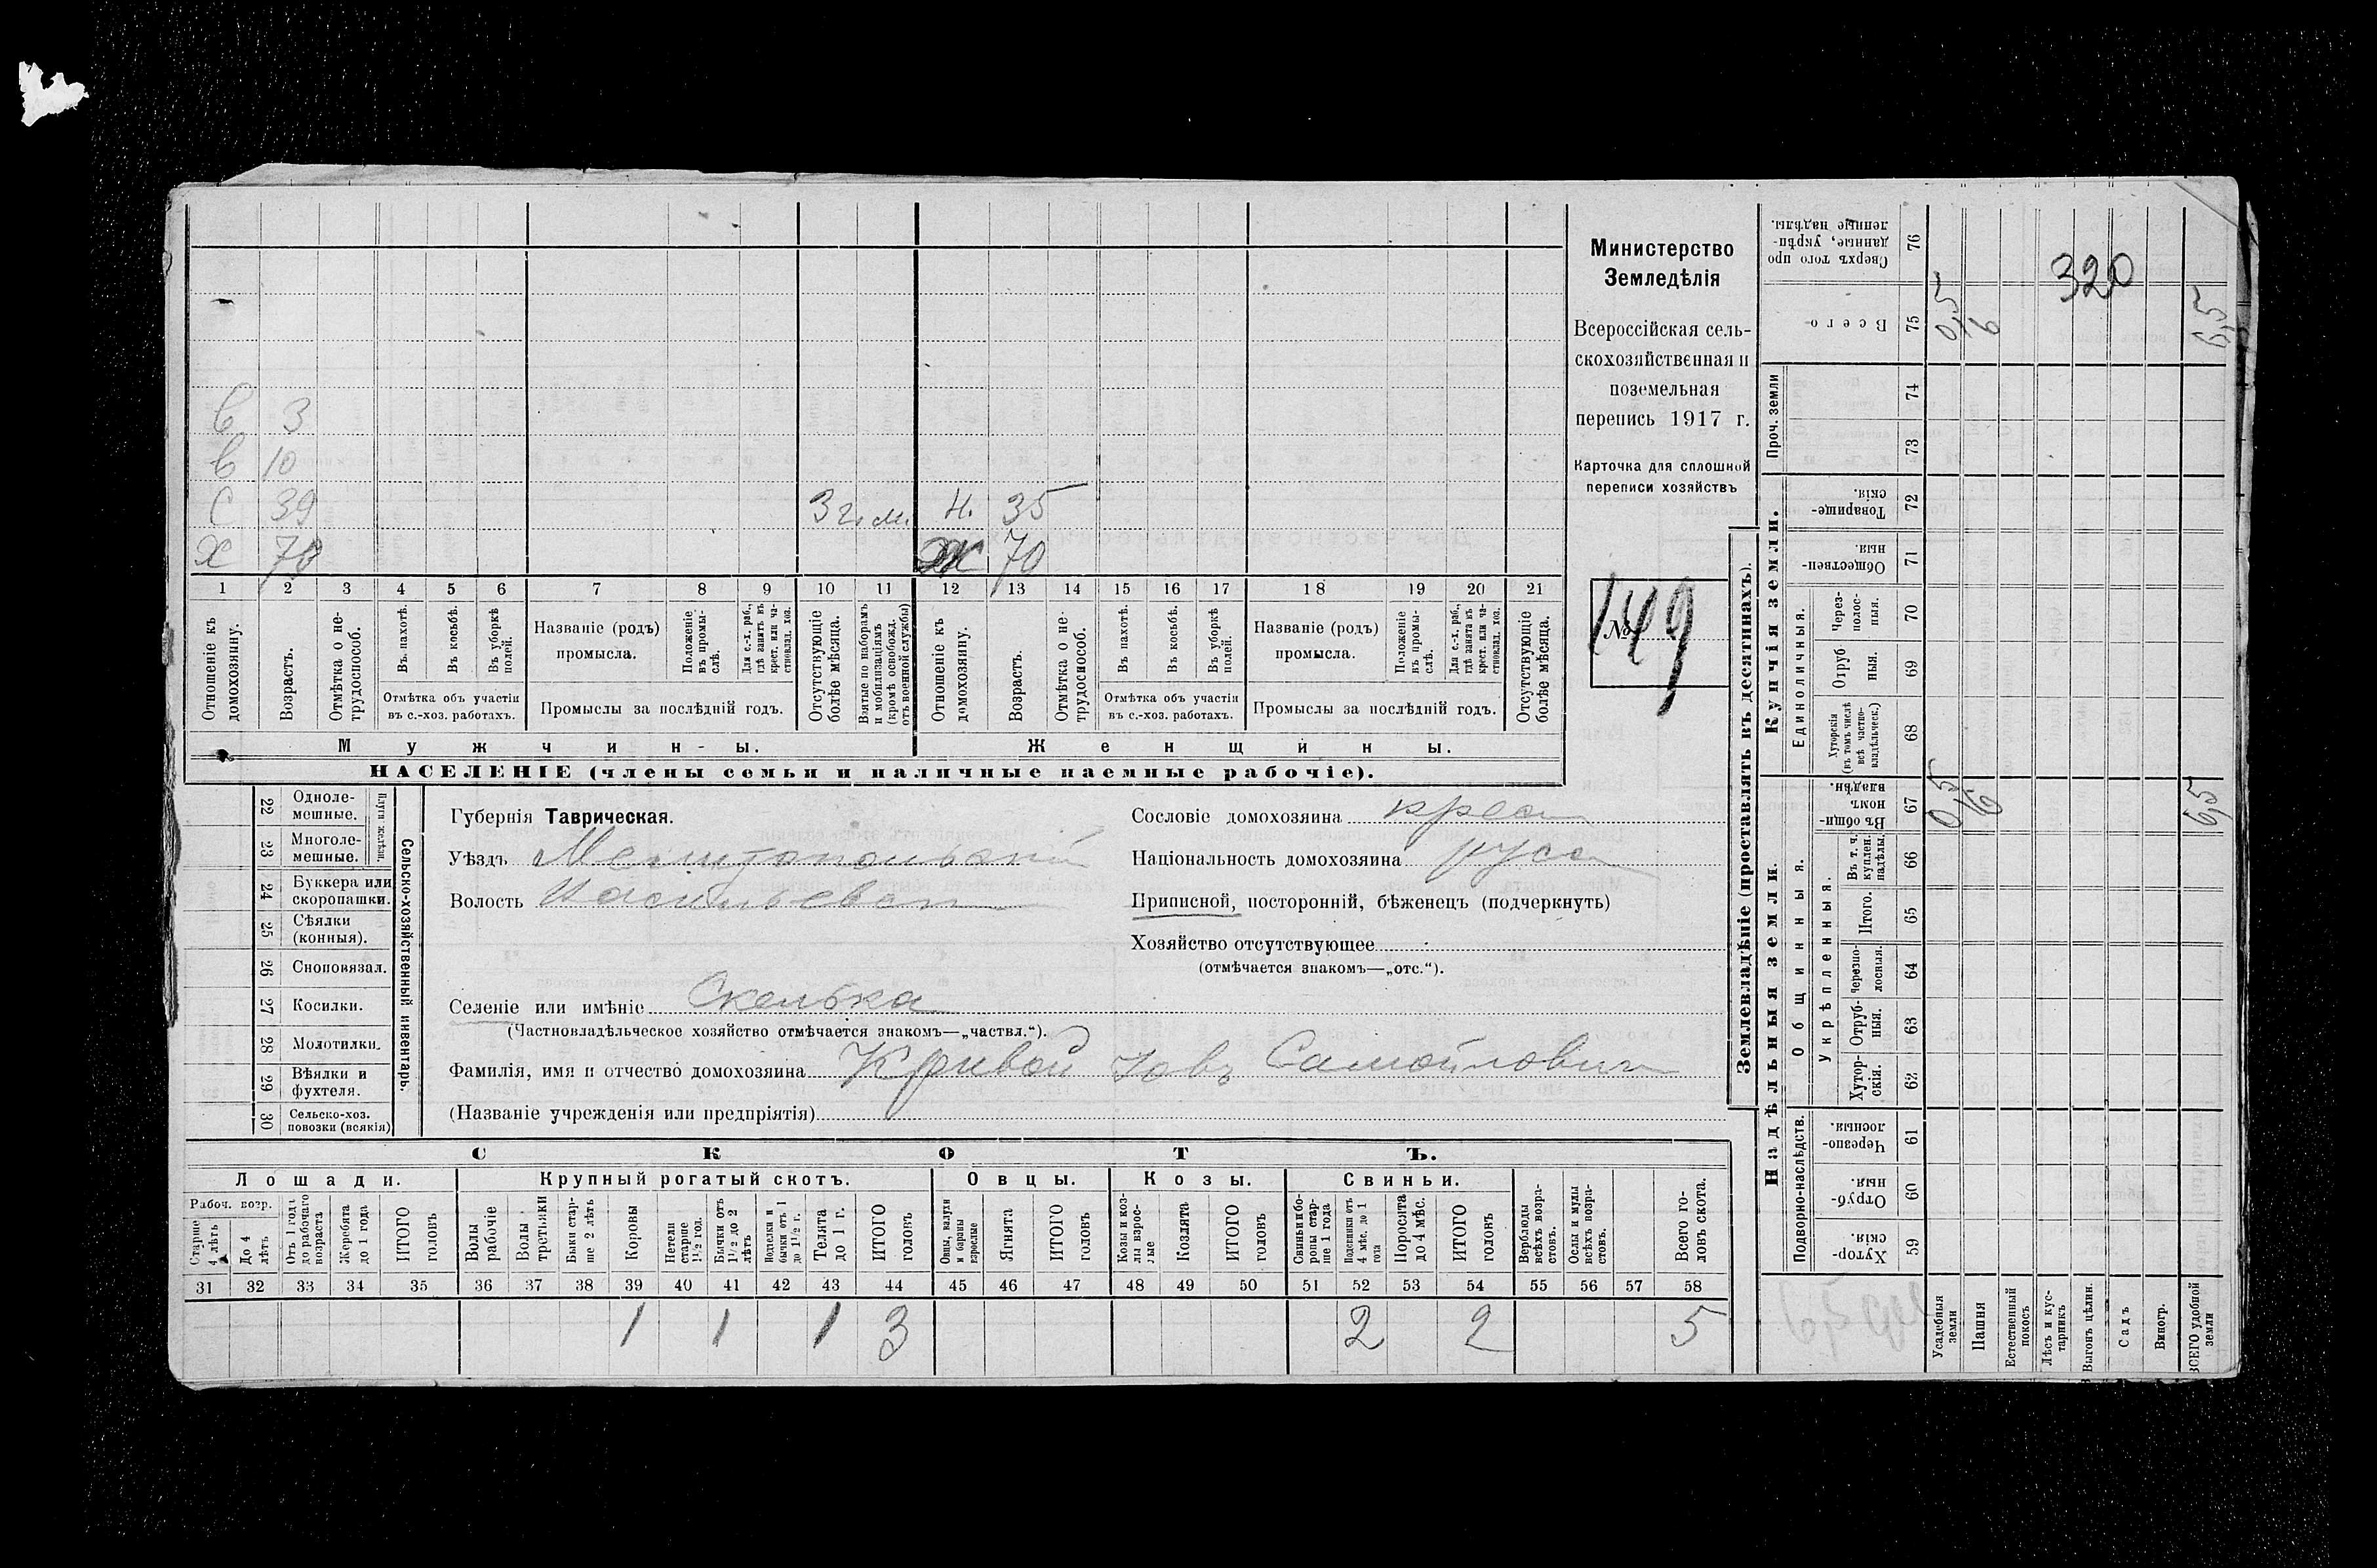 в 3
в 10
С 39 3 г. м. н. 35
Х 70 70
1 2 3 4 5 6 7 8 9 10 11 12 13 14 15 16 17 18 19 20 21
Отношеніе къ домохозяину.
Возрастъ.
Отмѣтка о не-
трудоспособ.
Въ пахотѣ.
Въ косьбѣ.
Въ уборкѣ
полей.
Отмѣтка объ участіи
въ с.-хоз. работахъ.
Названіе (родъ)
промысла.
Положеніе
въ промы-
слѣ.
Для с.-х. раб.,
гдѣ занятъ въ
крест. или ча-
стновлад. хоз.
Промыслы за послѣдній годъ.
Отсутствующіе
болѣе мѣсяца.
Взятые по наборамъ
и мобилизаціямъ
(кромѣ освобожд.
отъ военной службы)
Отношеніе къ
домохозяину.
Возрастъ.
Отмѣтка о не-
трудоспособ.
Въ пахотѣ.
Въ косьбѣ.
Въ уборкѣ
полей.
Отмѣтка объ участіи
въ с.-хоз. работахъ.
Названіе (родъ)
промысла.
Положеніе
въ промы-
слѣ.
Для с.-х. раб.,
гдѣ занята въ
крест. или ча-
стновлад. хоз.
Промыслы за послѣдній годъ.
Отсутствующіе
болѣе мѣсяца.
Мужчины.
Женщины.
НАСЕЛЕНІЕ (члены семьи и наличные наемные рабочіе).
Министерство
Земледѣлія
Всероссійская сель-
скохозяйственная и
поземельная
перепись 1917 г.
Карточка для сплошной
переписи хозяйствъ
№ 149
22 Одноле-
мешные.
23 Многоле-
мешные.
Плуги желѣзн.
24 Буккера или
скоропашки.
25 Сѣялки
(конныя).
26 Сноповязал.
27 Косилки.
28 Молотилки.
29 Вѣялки и
фухтеля.
30 Сельско-хоз.
повозки (всякія)
Сельско-хозяйственный инвентарь.
Губернія Таврическая.
Уѣздъ Мелитопольский
Волость Васильевск
Селеніе или имѣніе Скелька
(Частновладѣльческое хозяйство отмѣчается знакомъ—„частвл.“).
Фамилія, имя и отчество домохозяина Кривой Іовъ Самойлович
(Названіе учрежденія или предпріятія)
Сословіе домохозяина крест
Національность домохозяина русс
Приписной, посторонній, бѣженецъ (подчеркнуть)
Хозяйство отсутствующее
(отмѣчается знакомъ—„отс.“).
СКОТЪ.
Лошади.
Рабоч. возр.
Старше
4 лѣтъ
До 4
лѣтъ
Отъ 1 года
до рабочаго
возраста
Жеребята
до 1 года
ИТОГО
головъ
Крупный рогатый скотъ.
Волы
рабочіе
Волы
третьяки
Быки стар-
ше 2 лѣтъ
Коровы
Нетели
старше
1½ год.
Бычки отъ
1½ до 2
лѣтъ
бычки отъ 1
до 1½ г.
Телята
до 1 г.
ИТОГО
головъ
Овцы.
Овцы, валухи
и бараны
взрослые
Ягнята
ИТОГО
головъ
Козы.
Козы и коз-
лы взрос-
лые
Козлята
ИТОГО
головъ
Свиньи.
Свиньи и бо-
ровы стар-
ше 1 года
Подсвинки отъ
4 мѣс. до 1
года
Поросята
до 4 мѣс.
ИТОГО
головъ
Верблюды
всѣхъ возра-
стовъ.
Ослы и мулы
всѣхъ возра-
стовъ.
Всего го-
ловъ скота.
31 32 33 34 35 36 37 38 39 40 41 42 43 44 45 46 47 48 49 50 51 52 53 54 55 56 57 58
1 1 1 3 2 2 5
Землевладѣніе (проставлять въ десятинахъ).
Купчія земли.
Сверхъ того про
данные, укрѣп-
ленные надѣлы.
76
Всего
75 0,5 6 6,5
320
Проч. земли
74
73
Товарище-
скія.
72
Обществен-
ныя.
71
Единоличныя.
Через-
полос-
ныя.
70
Отруб
ныя.
69
Хуторскія
(въ томъ числѣ
всѣ частно-
владѣльческ.)
68
Надѣльныя земли.
Общинныя.
Въ общи-
номъ
владѣн.
67 0,5 6 6,5
Укрѣпленныя.
Въ т. ч.
куплен.
надѣлы.
66
Итого.
65
Черезпо-
лосныя.
64
Отруб-
ныя.
63
Хутор-
скія.
62
Подворно-наслѣдств.
Черезпо-
лосныя.
61
Отруб-
ныя.
60
Хутор-
скія.
59
6,5 дес
Усадебныя
земли
Пашня
Естественный
покосъ
Лѣсъ и кус-
тарникъ
Выгонъ цѣлин.
Садъ
Виногр.
ВСЕГО удобной
земли